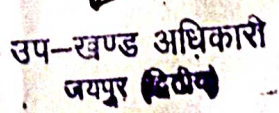 उप-खण्ड अधिकारी
जयपुर (द्वितीय)